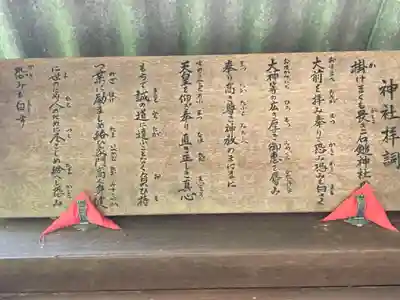 神社拝詞
掛けまくも畏き石神社の
大前を拝み奉りて恐み恐みも白さく
大神等の広き厚き御恵を辱み
奉り高き尊き神教のまにまに
天皇を仰ぎ奉り直き正しき真心
もちて誠の道に違ふことなく負ひ持
つ業に励ましめ給ひ家門高く身健
に世のため人のために尽さしめ給へと恐み
恐みも白す